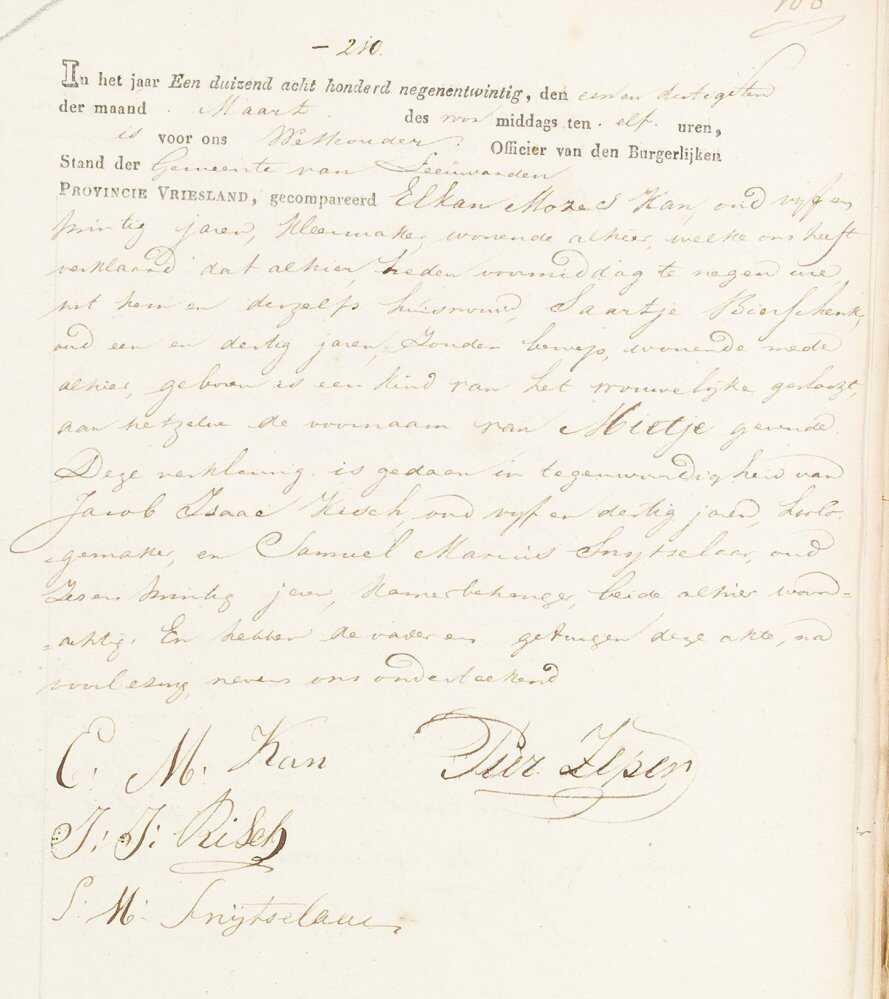 – 210.
In het jaar Een duizend acht honderd negenentwintig, den een en dertigsten
der maand Maart des voor middags ten elf uren,
is voor ons Wethouder, Officier van den Burgerlijken
Stand der Gemeente van Leeuwarden
PROVINCIE VRIESLAND, gecompareerd Elkan Mozes Kan, oud vijf en
twintig jaren, kleermaker, wonende alhier, welke ons heeft
verklaard dat alhier, heden voormiddag te negen ure,
uit hem en deszelfs huisvrouw, Saartje Bierschenk,
oud een en dertig jaren, zonder beroep, wonende mede
alhier, geboren is een kind van het vrouwelijke geslagt,
aan hetzelve de voornaam van Mietje gevende.
Deze verklaring is gedaan in tegenwoordigheid van
Jacob Isaac Risch, oud vijf en dertig jaren, horlo-
gemaker, en Samuel Marcus Snijtselaar, oud
zes en twintig jaren, kamerbehanger, beide alhier woon-
achtig. En hebben de vader en getuigen deze akte, na
voorlezing, nevens ons onderteekend
E. M. Kan
J: J: Risch
S. M. Snijtselaar